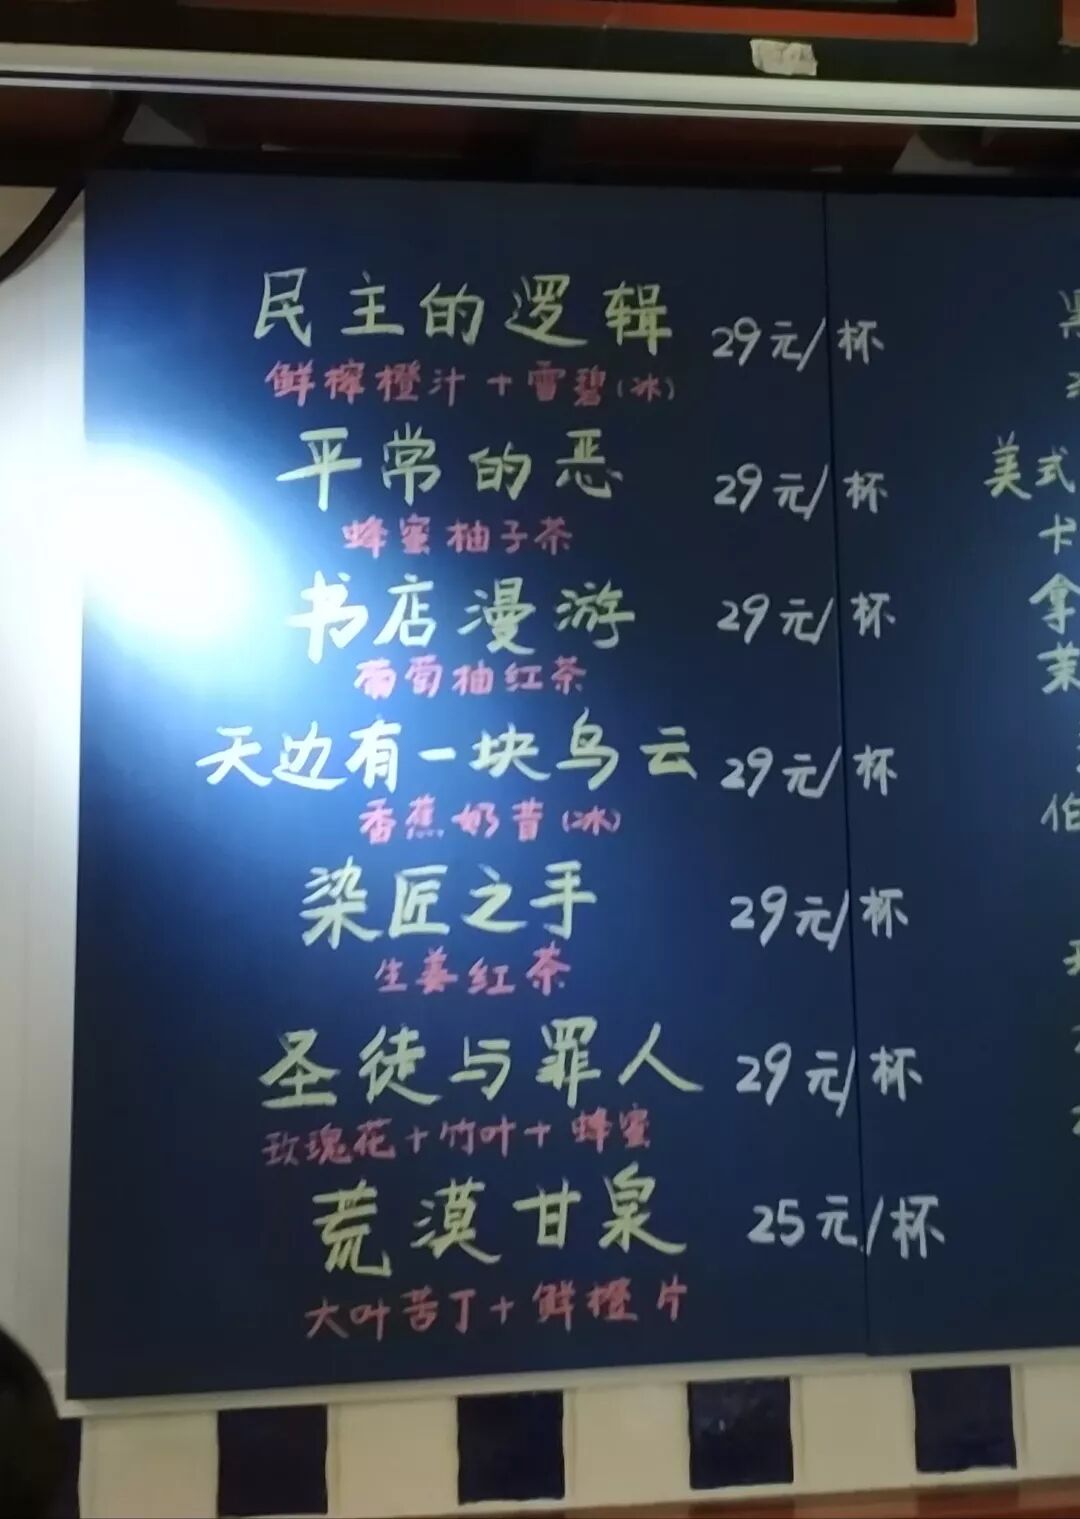 民主的逻辑 29元/杯
鲜榨橙汁+雪碧(冰)
平常的恶 29元/杯
蜂蜜柚子茶
书店漫游 29元/杯
葡萄柚红茶
天边有一块乌云 29元/杯
香蕉奶昔(冰)
染匠之手 29元/杯
生姜红茶
圣徒与罪人 29元/杯
玫瑰花+竹叶+蜂蜜
荒漠甘泉 25元/杯
大叶苦丁+鲜橙片
黑
美式
卡
拿
茉
伯